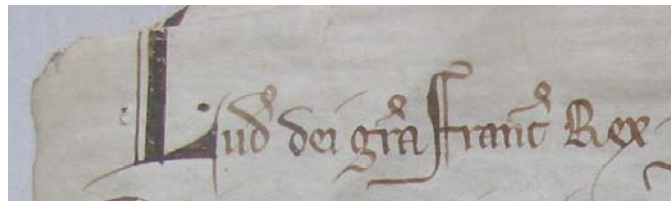 Lud dei gra Franc Rex